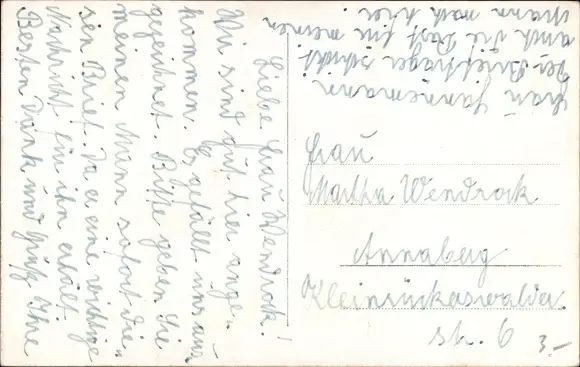 Liebe Frau Wendrock!
Wir sind gut hier ange-
kommen. Es gefällt uns aus-
gezeichnet. Bitte geben Sie
meinen Mann sofort die-
sen Brief. Da er eine wichtige
Nachricht für ihn erhält.
Besten Dank und Grüße Ihre
Frau Jannemann
Der Briefträger schickt
auch die Post für meinen
Mann nach hier.
Frau
Martha Wendrock
Annaberg
Kleinrückerswalder
str. 6
3.-